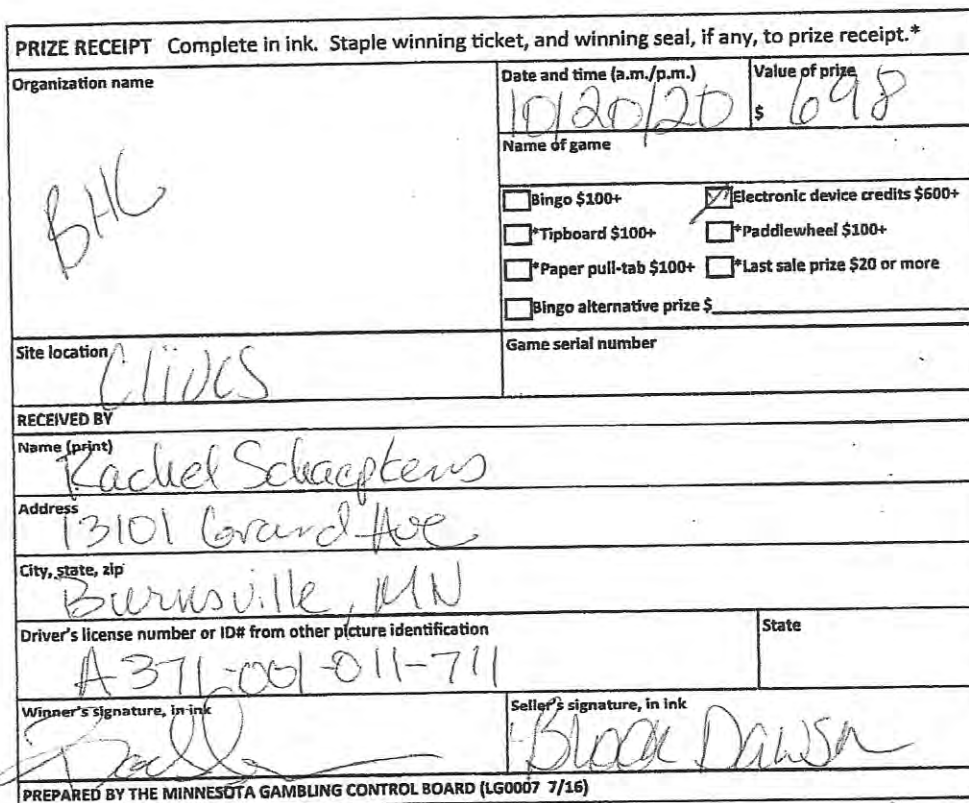 PRIZE RECEIPT Complete in ink. Staple winning ticket, and winning seal, if any, to prize receipt.*
Organization name
BHC
Date and time (a.m./p.m.)
10/20/20
Value of prize
$ 698
Name of game
Bingo $100+
Electronic device credits $600+
*Tipboard $100+
*Paddlewheel $100+
*Paper pull-tab $100+
*Last sale prize $20 or more
Bingo alternative prize $
Site location
Clives
Game serial number
RECEIVED BY
Name (print)
Rachel Schaepkens
Address
13101 Grand Ave
City, state, zip
Burnsville, MN
Driver's license number or ID# from other picture identification
A371-001-011-711
State
Winner's signature, in ink
Seller's signature, in ink
Dawsn
PREPARED BY THE MINNESOTA GAMBLING CONTROL BOARD (LG0007 7/16)